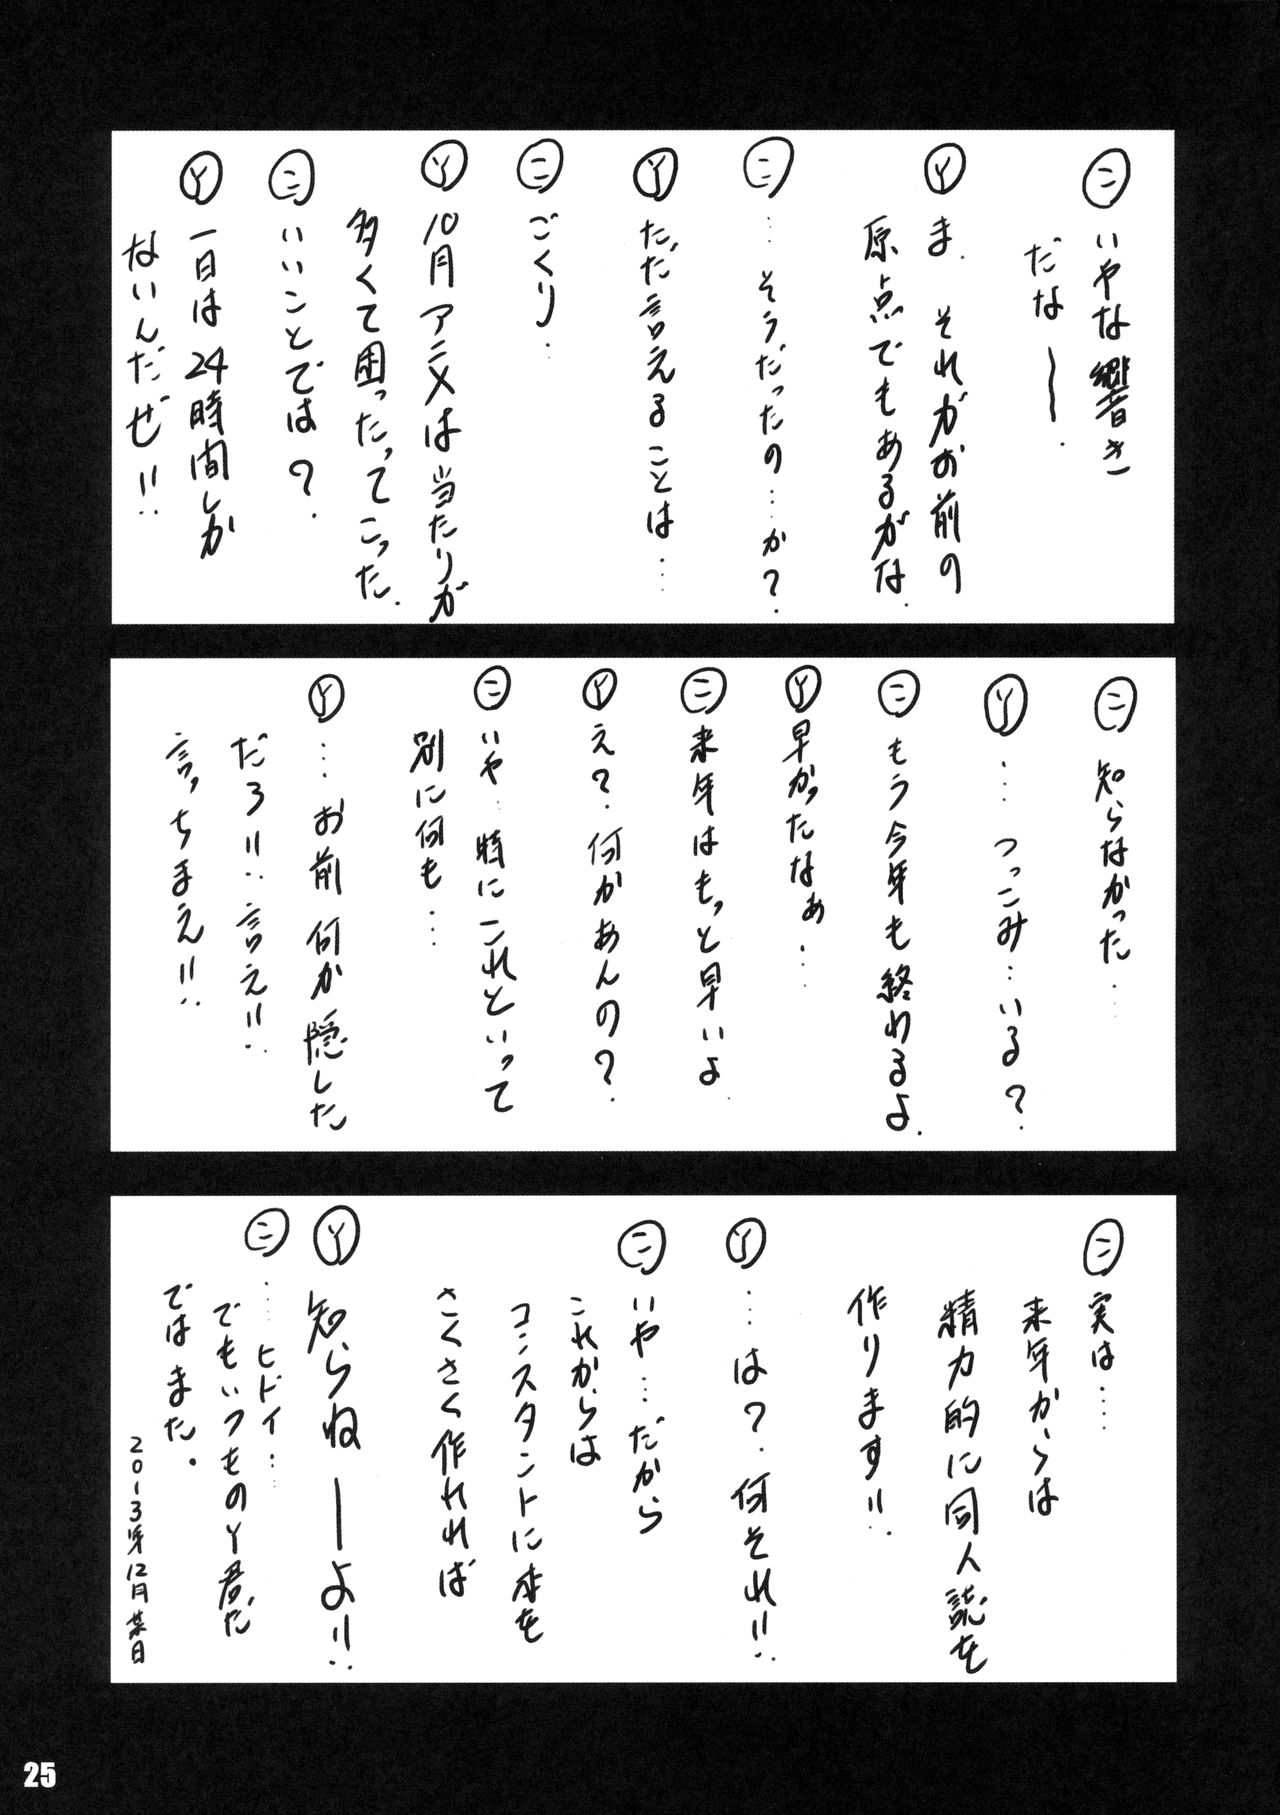 ㊁ いやな響き
だな〜.
Ⓨ ま. それがお前の
原点でもあるがな.
㊁ …そうだったの…か?.
Ⓨ ただ言えることは…
㊁ ごくり…
Ⓨ 10月アニメは当たりが
多くて困ったってこった.
㊁ いいことでは?.
Ⓨ 一日は24時間しか
ないんだぜ!!
㊁ 知らなかった…
Ⓨ …つっこみ…いる?.
㊁ もう今年も終わるよ.
Ⓨ 早かったなぁ…
㊁ 来年はもっと早いよ.
Ⓨ え?.何かあんの?.
㊁ いや…特にこれといって
別に何も…
Ⓨ …お前何か隠した
だろ!!言え!!
言っちまえ!!
㊁ 実は…
来年からは
精力的に同人誌を
作ります!!
Ⓨ …は?.何それ!!
㊁ いや…だから
これからは
コンスタントに本を
さくさく作れれば
Ⓨ 知らねーよ!!
㊁ ……ヒドイ……
でもいつものY君だ
ではまた.
2013年12月某日
25